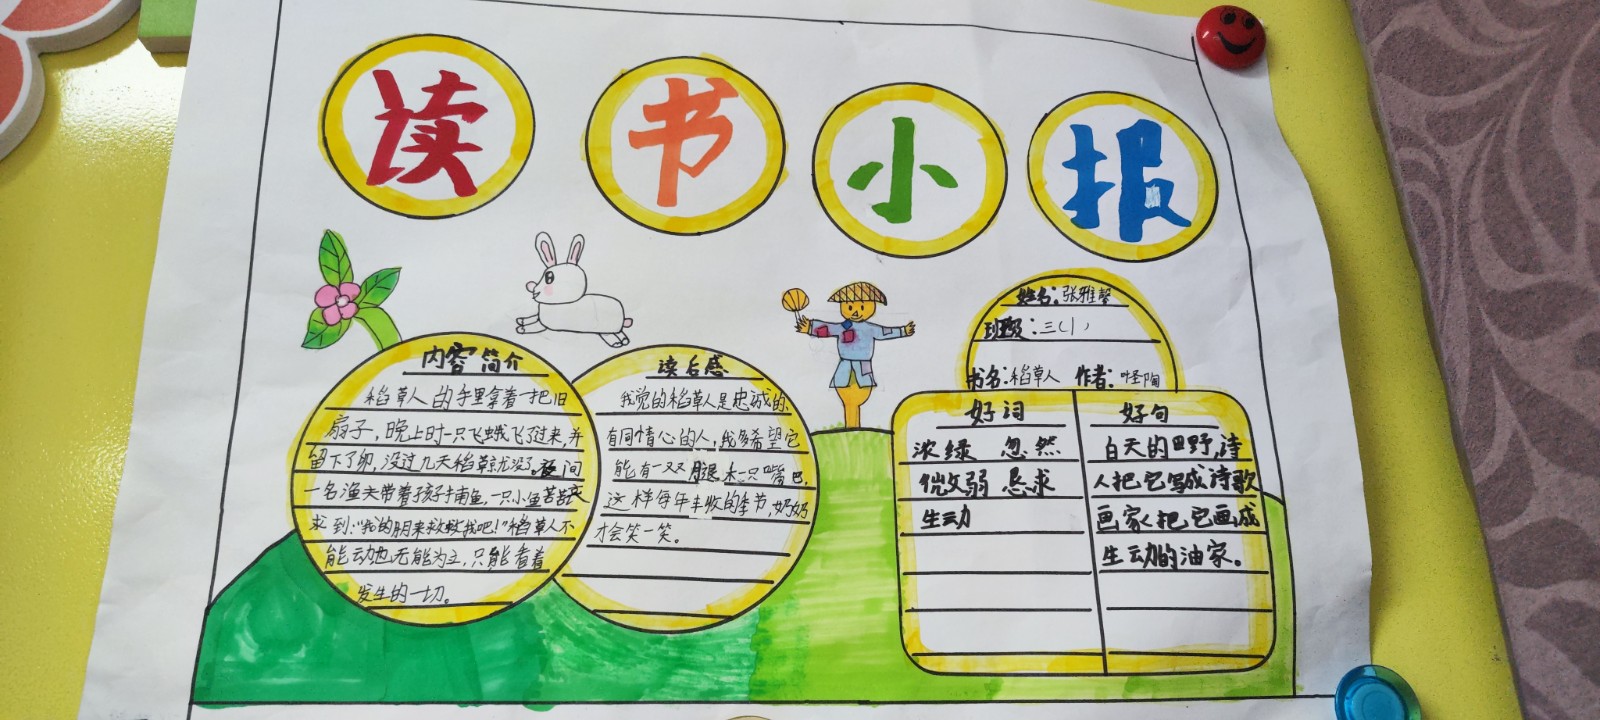 读书小报
姓名:张雅馨
班级:三(1)
书名:稻草人 作者:叶陶
内容简介
稻草人的手里拿着一把旧
扇子,晚上时一只飞蛾飞了过来,并
留下了卵,没过几天稻草就没了。夜间
一名渔夫带着孩子捕鱼,一只小鱼苦苦哀
求到:“我的朋来救救我吧!”稻草人不
能动也无能为立,只能看着
发生的一切。
读后感
我觉的稻草人是忠诚的
有同情心的人,我多希望它
能有一双腿,一只嘴巴,
这样每年丰收的季节,奶奶
才会笑一笑。
好词
浓绿 忽然
微弱 恳求
生动
好句
白天的田野,诗
人把它写成诗歌
画家把它画成
生动的油家。